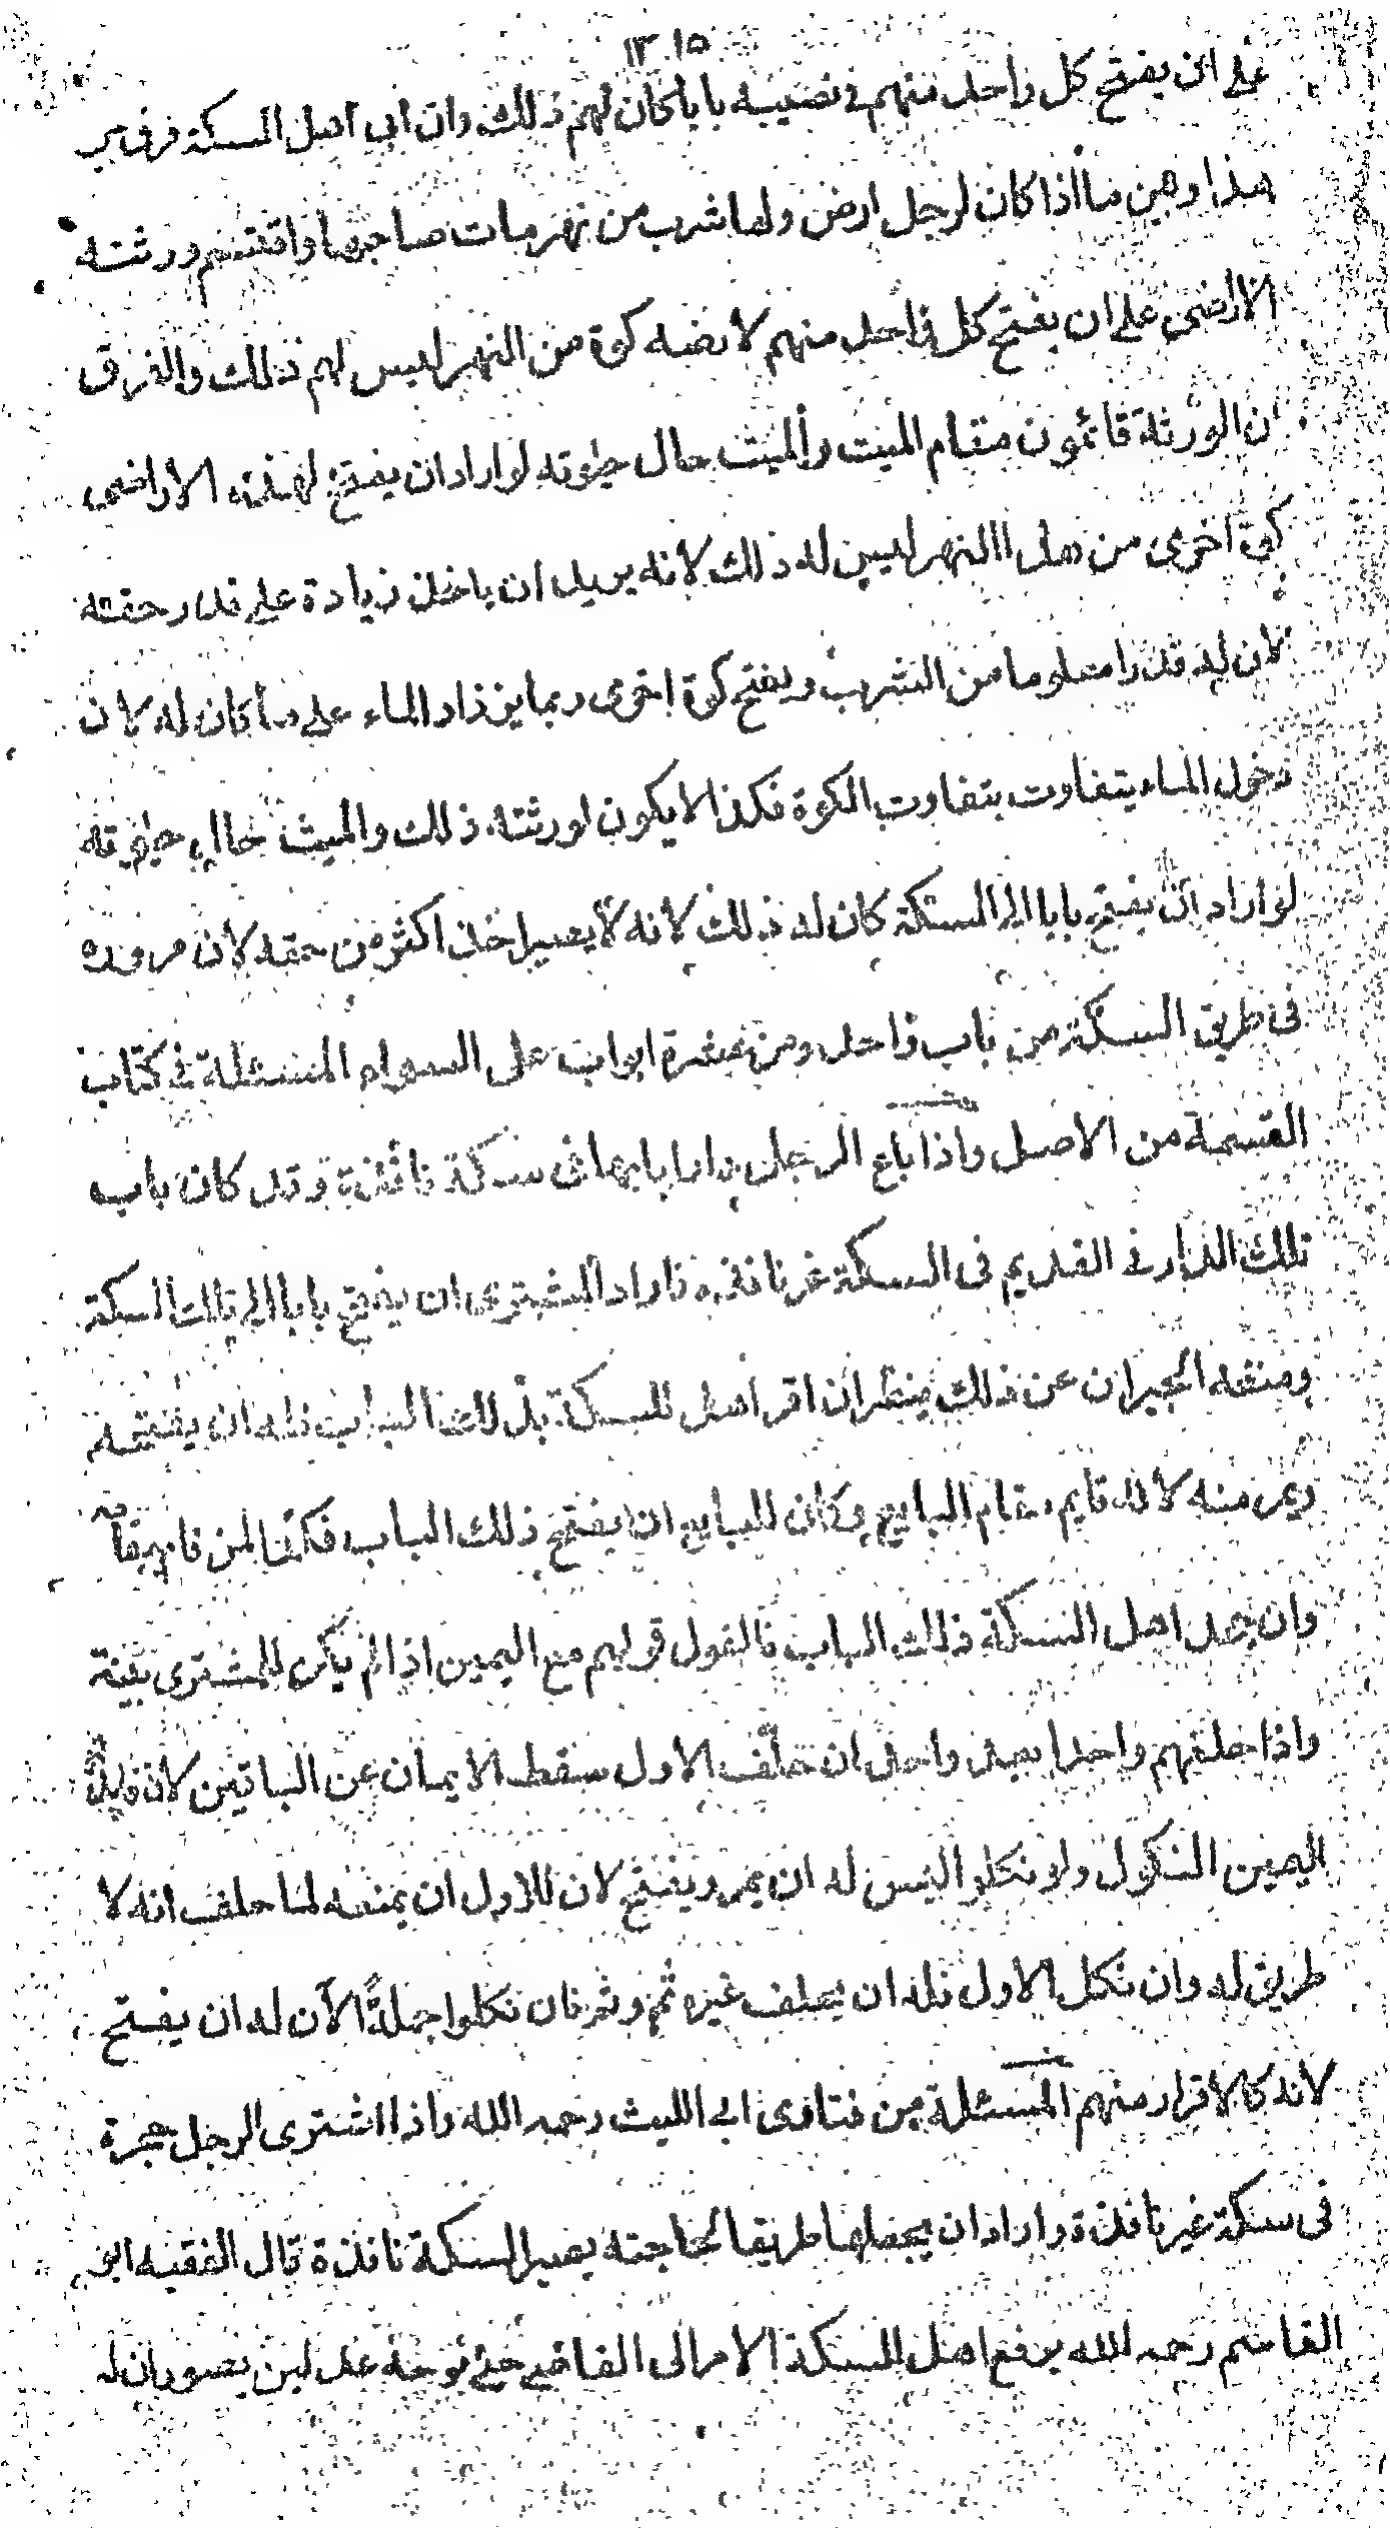 ١٣٠١٥
على ان يفتح كل واحد منهم في نصيبه بابا كان لهم ذلك وان ابى اهل السكة فرق بين
هذا وبين ما اذا كان لرجل ارض ولها شرب من نهر مات صاحبها واقتسم ورثته
الاراضى على ان يفتح كل واحد منهم لارضه كوة من النهر ليس لهم ذلك والفرق
ان الورثة قائمون مقام الميت والميت حال حيوته لو اراد ان يفتح لهذه الاراضى
كوة اخرى من هذا النهر ليس له ذلك لانه يريد ان ياخذ زيادة على قدر حقه
لان له قدرا معلوما من الشرب وبفتح كوة اخرى ربما يزداد الماء على ما كان له لان
دخول الماء يتفاوت بتفاوت الكوة فكذا لا يكون لورثته ذلك والميت حال حيوته
لو اراد ان يفتح بابا الى السكة كان له ذلك لانه لا يصير اخذ اكثر من حقه لان مروره
فى طريق السكة من باب واحد ومن عشرة ابواب على السواء المسئلة في كتاب
القسمة من الاصل واذا باع الرجل دارا بابها فى سكة نافذة وقد كان باب
تلك الدار في القديم فى السكة غير نافذه فاراد المشترى ان يفتح بابا الى تلك السكة
ومنعه الجيران عن ذلك ينظر ان اقر اهل السكة بذلك الباب فله ان يفتحه
ويمر منه لانه قايم مقام البايع وكان للبايع ان يفتح ذلك الباب فكذا لمن قام مقامه
وان جحد اهل السكة ذلك الباب فالقول قولهم مع اليمين اذا لم يكن للمشترى بينة
واذا حلفهم واحدا بعد واحد ان حلف الاول سقط الايمان عن الباقين لان فايدة
اليمين النكول ولو نكلوا ليس له ان يمر ويفتح لان للاول ان يمنعه لما حلف انه لا
طريق له وان نكل الاول فله ان يحلف غيره ثم وثم فان نكلوا جملة الآن له ان يفتح
لانه كالاقرار منهم المسئلة من فتاوى ابى الليث رحمه الله واذا اشترى الرجل حجرة
فى سكة غير نافذة واراد ان يجعلها طريقا لحاجته يصير السكة نافذة قال الفقيه ابو
القاسم رحمه الله يرفع اهل السكة الامر الى القاضى حتى